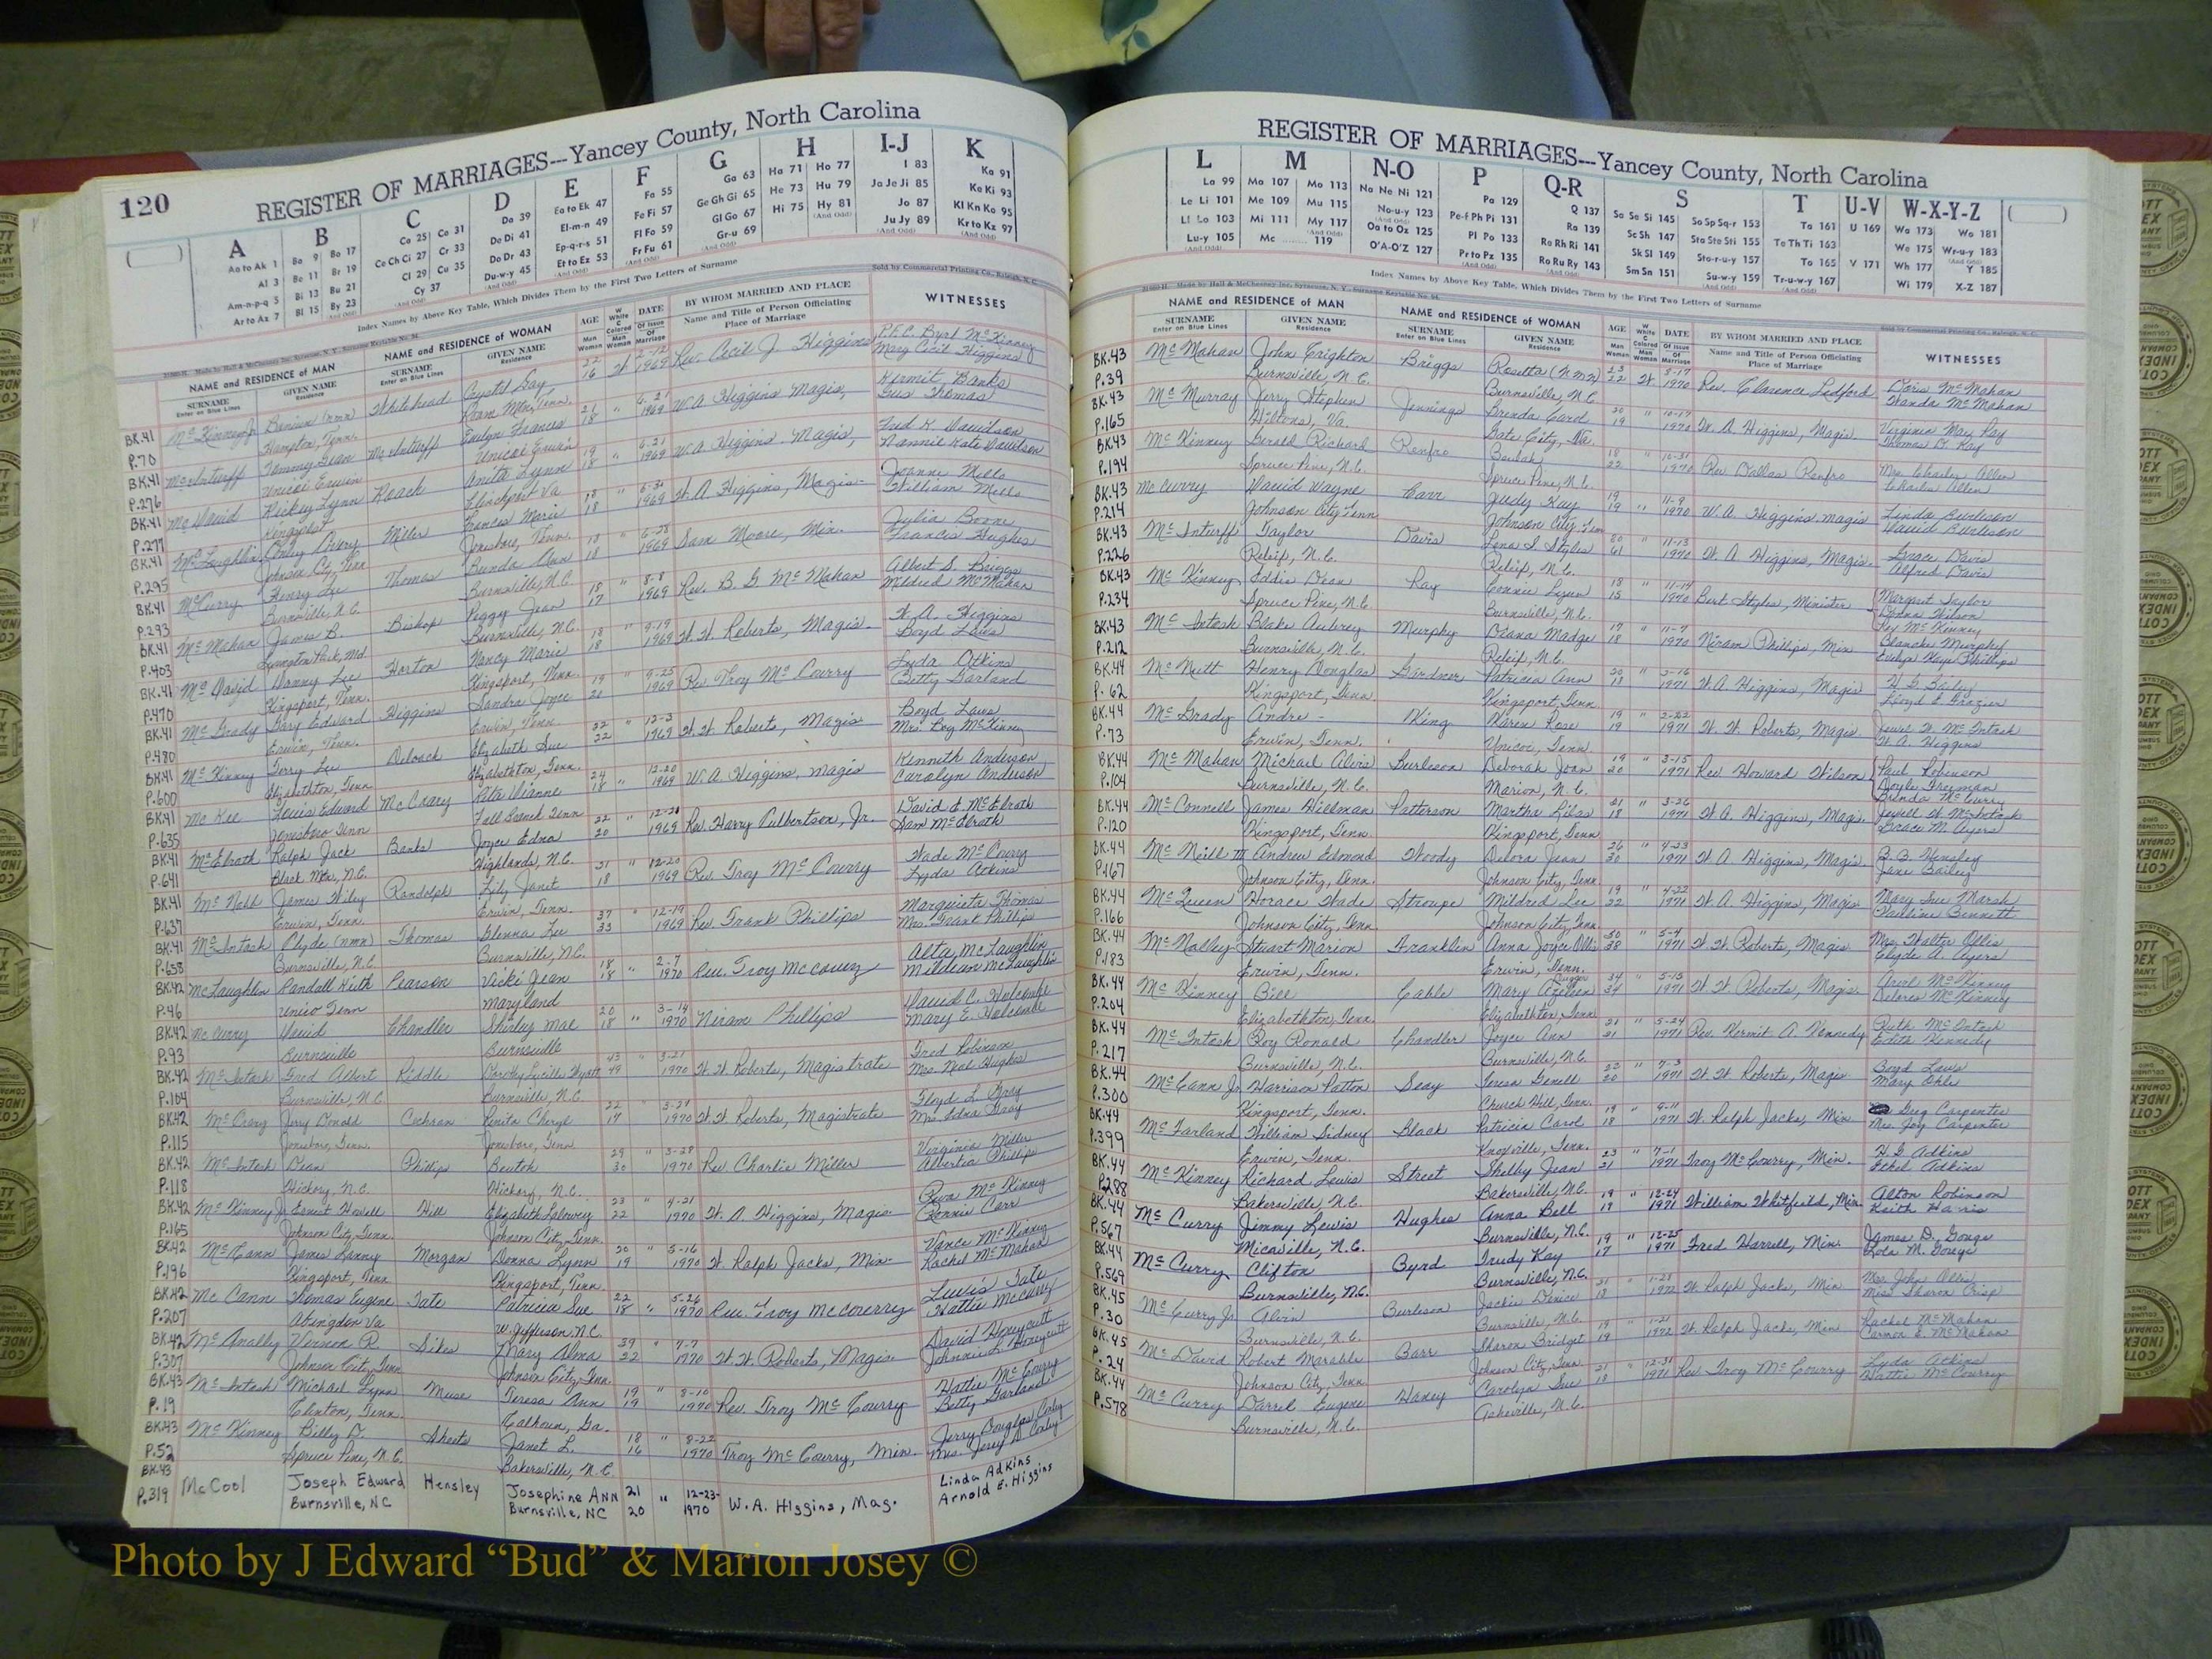 120
REGISTER OF MARRIAGES---Yancey County, North Carolina
A B C D E F G H I-J K
Aa to Ak 1 Ba 9 Bo 17 Ca 25 Co 31 Da 39 Ea to Ek 47 Fa 55 Ga 63 Ha 71 Ho 77 I 83 Ka 91
Al 3 Be 11 Br 19 Ce Ch Ci 27 Cr 33 De Di 41 El-m-n 49 Fe Fi 57 Ge Gh Gi 65 He 73 Hu 79 Ja Je Ji 85 Ke Ki 93
Am-n-p-q 5 Bi 13 Bu 21 Cl 29 Cu 35 Do Dr 43 Ep-q-r-s 51 Fl Fo 59 Gl Go 67 Hi 75 Hy 81 Jo 87 Kl Kn Ko 95
Ar to Az 7 Bl 15 By 23 Cy 37 Du-w-y 45 Et to Ez 53 Fr Fu 61 Gr-u 69 Ju Jy 89 Kr to Kz 97
Index Names by Above Key Table, Which Divides Them by the First Two Letters of Surname
Sold by Commercial Printing Co., Raleigh, N. C.
NAME and RESIDENCE of MAN
NAME and RESIDENCE of WOMAN
AGE
DATE
BY WHOM MARRIED AND PLACE
Name and Title of Person Officiating
Place of Marriage
WITNESSES
BK.41 McKinney Jr Whitehead 16 W 1969 Rev. Cecil J. Higgins P.F.C. Byrl McKinney
P.70 Hampton, Tenn. Mary Cecil Higgins
BK.41 McInturff Tommy Dean McInturff Evelyn Frances 18 " 1969 W.A. Higgins Magis, Kermit Banks
P.276 Unicoi Erwin Unicoi Erwin Gus Thomas
BK.41 McDavid Rickey Lynn Roach Anita Lynn 19 18 " 6-21 1969 W.A. Higgins Magis, Fred K Davidson
P.277 Kingsport Nannie Kate Davidson
BK.41 McLaughlin Miller Frances Marie 18 18 " 6-20 1969 W.A. Higgins, Magis- Joanne Mills
P.295 Johnson City, Tenn Jonesboro, Tenn. William Mills
BK.41 McCurry Henry Lee Thomas Brenda Ann 18 18 " 6-28 1969 Sam Moore, Min. Julia Boone
P.293 Burnsville, N.C. Burnsville, N.C. Francis Hughes
BK.41 McMahan James B. Bishop Peggy Jean 18 17 " 8-8 1969 Rev. B. G McMahan Albert S. Briggs
P.403 Lexington Park, Md. Burnsville, N.C. Mildred McMahan
BK.41 McDavid Danny Lee Horton Nancy Marie 18 18 " 9-19 1969 W.W. Roberts, Magis. W.A. Higgins
P.470 Kingsport, Tenn. Kingsport, Tenn. Boyd Laws
BK.41 McGrady Gary Edward Higgins Sandra Joyce 19 20 " 9-25 1969 Rev Troy McCourry Lyda Atkins
P.480 Erwin, Tenn. Erwin, Tenn Betty Garland
BK.41 McKinney Terry Lee Deloach Elizabeth Sue 22 22 " 12-3 1969 W.W. Roberts, Magis Boyd Laws
P.600 Elizabethton, Tenn Elizabethton, Tenn. Mrs. Bog McKinney
BK.41 McKee Louis Edward McCrary Rita Dianne 24 18 " 12-20 1969 W.A. Higgins, Magis Kenneth Anderson
P.635 Jonesboro Tenn Fall Branch Tenn Carolyn Anderson
BK.41 McElrath Ralph Jack Banks Joyce Edna 22 20 " 1969 Rev. Harry Culbertson, Jr. David E. McElrath
P.641 Black Mtn, N.C. Highlands, N.C. Sam McElrath
BK.41 McNabb James Wiley Randolph Lily Janet 21 18 " 12-20 1969 Rev. Troy McCourry Wade McCurry
P.637 Erwin, Tenn. Erwin, Tenn. Lyda Atkins
BK.41 McIntosh Clyde (nmn) Thomas Glenna Lee 37 33 " 12-19 1969 Rev Frank Phillips Marguieta Thomas
P.658 Burnsville, N.C. Burnsville, N.C. Mrs. Frank Phillips
BK.42 McLaughlin Randall Keith Pearson Vicki Jean 18 18 " 2-7 1970 Rev. Troy McCoury Alta McLaughlin
P.46 Unico Tenn Maryland Mildean McLaughlin
BK.42 McCurry David Chandler Shirley Mae 20 18 " 3-14 1970 Niram Phillips David C. Holcombe
P.93 Burnsville Burnsville Mary E. Holcombe
BK.42 McIntosh Fred Albert Riddle Dorothy Lucille Wyatt 43 49 " 3-21 1970 W.W. Roberts, Magistrate Fred Robinson
P.104 Burnsville, N.C. Burnsville, N.C. Mrs. Neal Hughes
BK.42 McCrary Jerry Donald Cochran Renita Cheryl 22 17 " 1970 W.W. Roberts, Magistrate Floyd L. Gray
P.115 Jonesboro, Tenn. Jonesboro, Tenn Mrs. Edna Gray
BK.42 McIntosh Dean Phillips Beulah 29 30 " 3-28 1970 Rev. Charlie Miller Virginia Miller
P.118 Hickory, N.C. Hickory, N.C. Albertia Phillips
BK.42 McKinney Jr. Ernest Hill 23 22 " 4-21 1970 W.A. Higgins, Magis Reva McKinney
P.165 Johnson City, Tenn Johnson City, Tenn. Ronnie Carr
BK.42 McCann James Lanny Morgan Donna Lynn 20 19 " 5-16 1970 W. Ralph Jacks, Min. Vance McKinney
P.196 Kingsport, Tenn Kingsport, Tenn. Rachel McMahan
BK.42 McCann Thomas Eugene Tate Patricia Sue 22 18 " 5-26 1970 Rev. Troy McCourry Luvis Tate
P.207 Abingdon Va W. Jefferson, N.C. Hattie McCurry
BK.42 McAnally Vernon R. Sikes Mary Alma 39 32 " 7-7 1970 W.W. Roberts, Magis David Honeycutt
P.307 Johnson City, Tenn Johnson City, Tenn. Johnnie L. Honeycutt
BK.43 McIntosh Michael Lynn Muse Teresa Ann 19 19 " 8-10 1970 Rev. Troy McCourry Hattie McCourry
P.19 Clinton, Tenn. Calhoun, Ga. Betty Garland
BK.43 McKinney Billy D. Sheets Janet L. 18 16 " 8-22 1970 Troy McCourry, Min.
P.52 Spruce Pine, N.C. Bakersville, N.C.
BK.43 McCool Joseph Edward Hensley Josephine ANN 21 " 12-23- W.A. Higgins, Mag. Linda Adkins
P.319 Burnsville, NC Burnsville, NC 20 1970 Arnold E. Higgins
REGISTER OF MARRIAGES---Yancey County, North Carolina
L M N-O P Q-R S T U-V W-X-Y-Z
La 99 Ma 107 Mo 113 Na Ne Ni 121 Pa 129 Q 137 Sa Se Si 145 So Sp Sq-r 153 Ta 161 U 169 Wa 173 Wo 181
Le Li 101 Me 109 Mu 115 No-u-y 123 Pe-f Ph Pi 131 Ra 139 Sc Sh 147 Sta Ste Sti 155 Te Th Ti 163 We 175 Wr-u-y 183
Ll Lo 103 Mi 111 My 117 Oa to Oz 125 Pl Po 133 Re Rh Ri 141 Sk Sl 149 Sto-r-u-y 157 To 165 V 171 Wh 177 Y 185
Lu-y 105 Mc 119 O'A-O'Z 127 Pr to Pz 135 Ro Ru Ry 143 Sm Sn 151 Su-w-y 159 Tr-u-w-y 167 Wi 179 X-Z 187
Index Names by Above Key Table, Which Divides Them by the First Two Letters of Surname
NAME and RESIDENCE of MAN
NAME and RESIDENCE of WOMAN
SURNAME GIVEN NAME SURNAME GIVEN NAME AGE DATE BY WHOM MARRIED AND PLACE WITNESSES
BK.43 McMahan John Crighton Briggs Rosetta (NMN) 23 22 W 8-17 1970 Rev. Clarence Ledford Doris McMahan
P.39 Burnsville, N.C. Burnsville, N.C. Wanda McMahan
BK.43 McMurray Jerry Stephen Jennings Brenda Carol 20 19 " 10-17 1970 W.A. Higgins, Magis. Virginia May Ray
P.165 Hiltons, Va. Gate City, Va. Thomas D. Ray
BK.43 McKinney Gerald Richard Renfro Beulah 18 22 " 10-31 1970 Rev. Dallas Renfro Mrs. Charles Allen
P.194 Spruce Pine, N.C. Spruce Pine, N.C. Charles Allen
BK.43 McCurry David Wayne Carr Judy Kay 19 19 " 11-9 1970 W.A. Higgins. Magis Linda Burleson
P.214 Johnson City Tenn Johnson City, Tenn David Burleson
BK.43 McInturff Taylor Davis Lena I. Styles 80 61 " 11-13 1970 W.A. Higgins, Magis. Grace Davis
P.226 Releif, N.C. Releif, N.C. Alfred Davis
BK.43 McKinney Eddie Dean Ray Connie Lynn 18 15 " 11-14 1970 Burt Styles, Minister Margaret Taylor
P.234 Spruce Pine, N.C. Burnsville, N.C.
BK.43 McIntosh Blake Aubrey Murphy Diana Madge 17 18 " 11-7 1970 Niram Phillips, Min Blanche Murphy
P.212 Burnsville, N.C. Releif, N.C. Evelyn Kaye Phillips
BK.44 McNutt Henry Douglas Gardner Patricia Ann 20 18 " 2-16 1971 W.A. Higgins, Magis H.G. Bailey
P.62 Kingsport, Tenn. Kingsport, Tenn. Lloyd E. Frazier
BK.44 McGrady Andre - King Karen Rose 19 19 " 2-22 1971 W.W. Roberts, Magis Jewel W. McIntosh
P.73 Erwin, Tenn. Unicoi, Tenn. W.A. Higgins
BK.44 McMahan Michael Alvis Burleson Deborah Joan 19 20 " 3-15 1971 Rev. Howard Wilson Paul Robinson
P.104 Burnsville, N.C. Marion, N.C. Doyle Freeman
Brenda McCurry
BK.44 McConnell James Hillman Patterson Martha Lilas 21 18 " 3-26 1971 W.A. Higgins, Magis. Jewell W. McIntosh
P.120 Kingsport, Tenn. Kingsport, Tenn Grace M. Ayers
BK.44 McNeill III Andrew Edmond Woody Delora Jean 26 30 " 4-23 1971 W.A. Higgins, Magis. B.B. Hensley
P.167 Johnson City, Tenn. Johnson City, Tenn. Jane Bailey
BK.44 McQueen Horace Wade Stroupe Mildred Lee 19 22 " 4-22 1971 W.A. Higgins, Magis Mary Sue Marsh
P.166 Johnson City, Tenn. Johnson City, Tenn Pauline Bennett
BK.44 McNalley Stuart Marion Franklin Anna Joyce Ollis 50 38 " 5-4 1971 W.W. Roberts, Magis Mrs. Walter Ollis
P.183 Erwin, Tenn. Erwin, Tenn. Clyde A. Ayers
BK.44 McKinney Bill Cable Mary 34 34 " 5-15 1971 W.W. Roberts, Magis. Arvil McKinney
P.204 Elizabethton, Tenn. Elizabethton, Tenn Delores McKinney
BK.44 McIntosh Roy Ronald Chandler Joyce Ann 21 21 " 5-24 1971 Rev. Kermit A. Kennedy Ruth McIntosh
P.217 Burnsville, N.C. Burnsville, N.C. Edith Kennedy
BK.44 McCann Jr Harrison Patton Seay Teresa Genell 22 20 " 7-3 1971 W.W. Roberts, Magis Boyd Laws
P.300 Kingsport, Tenn. Church Hill, Tenn. Mary Ohle
BK.44 McFarland William Sidney Black Patricia Carol 19 18 " 9-11 1971 W. Ralph Jacks, Min Greg Carpenter
P.399 Erwin, Tenn. Knoxville, Tenn. Mrs. Joy Carpenter
BK.44 McKinney Richard Lewis Street Shelby Jean 23 21 " 7-1 1971 Troy McCourry, Min. H.G. Adkins
P.288 Bakersville N.C. Bakersville, N.C. Ethel Adkins
BK.44 McCurry Jimmy Lewis Hughes Anna Bell 19 19 " 12-24 1971 William Whitfield, Min Alton Robinson
P.567 Micaville, N.C. Burnsville, N.C. Keith Harris
BK.44 McCurry Clifton Byrd Trudy Kay 19 17 " 12-25 1971 Fred Harrell, Min. James D. Gouge
P.569 Burnsville, N.C. Burnsville, N.C. Lola M. Gouge
BK.45 McCurry Jr Alvin Burleson Jackie Denice 21 18 " 1-28 1972 W. Ralph Jacks, Min Mrs. John Allen
P.30 Burnsville, N.C. Burnsville, N.C. Miss Sharon Crisp
BK.45 McDavid Robert Marable Barr Sharon Bridget 19 19 " 1-21 1972 W. Ralph Jacks, Min Rachel McMahan
P.24 Johnson City, Tenn Johnson City, Tenn. Carmon E. McMahan
BK.44 McCurry Darrel Eugene Haney Carolyn Sue 21 18 " 12-31 1971 Rev. Troy McCourry Lyda Atkins
P.578 Burnsville, N.C. Asheville, N.C. Hattie McCourry
Photo by J Edward “Bud” & Marion Josey ©